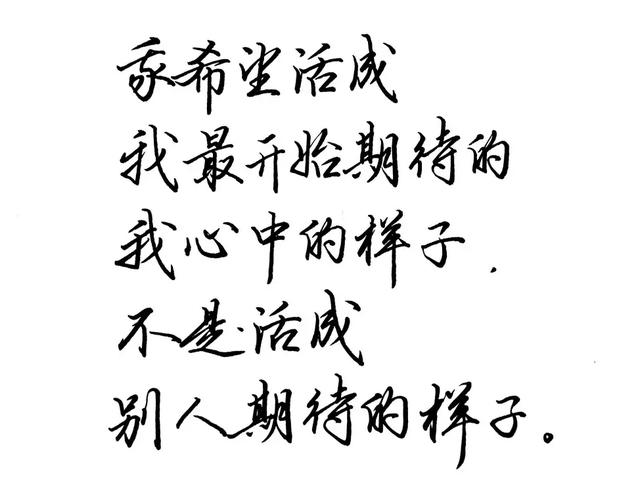 我希望活成
我最开始期待的
我心中的样子,
不是活成
别人期待的样子。